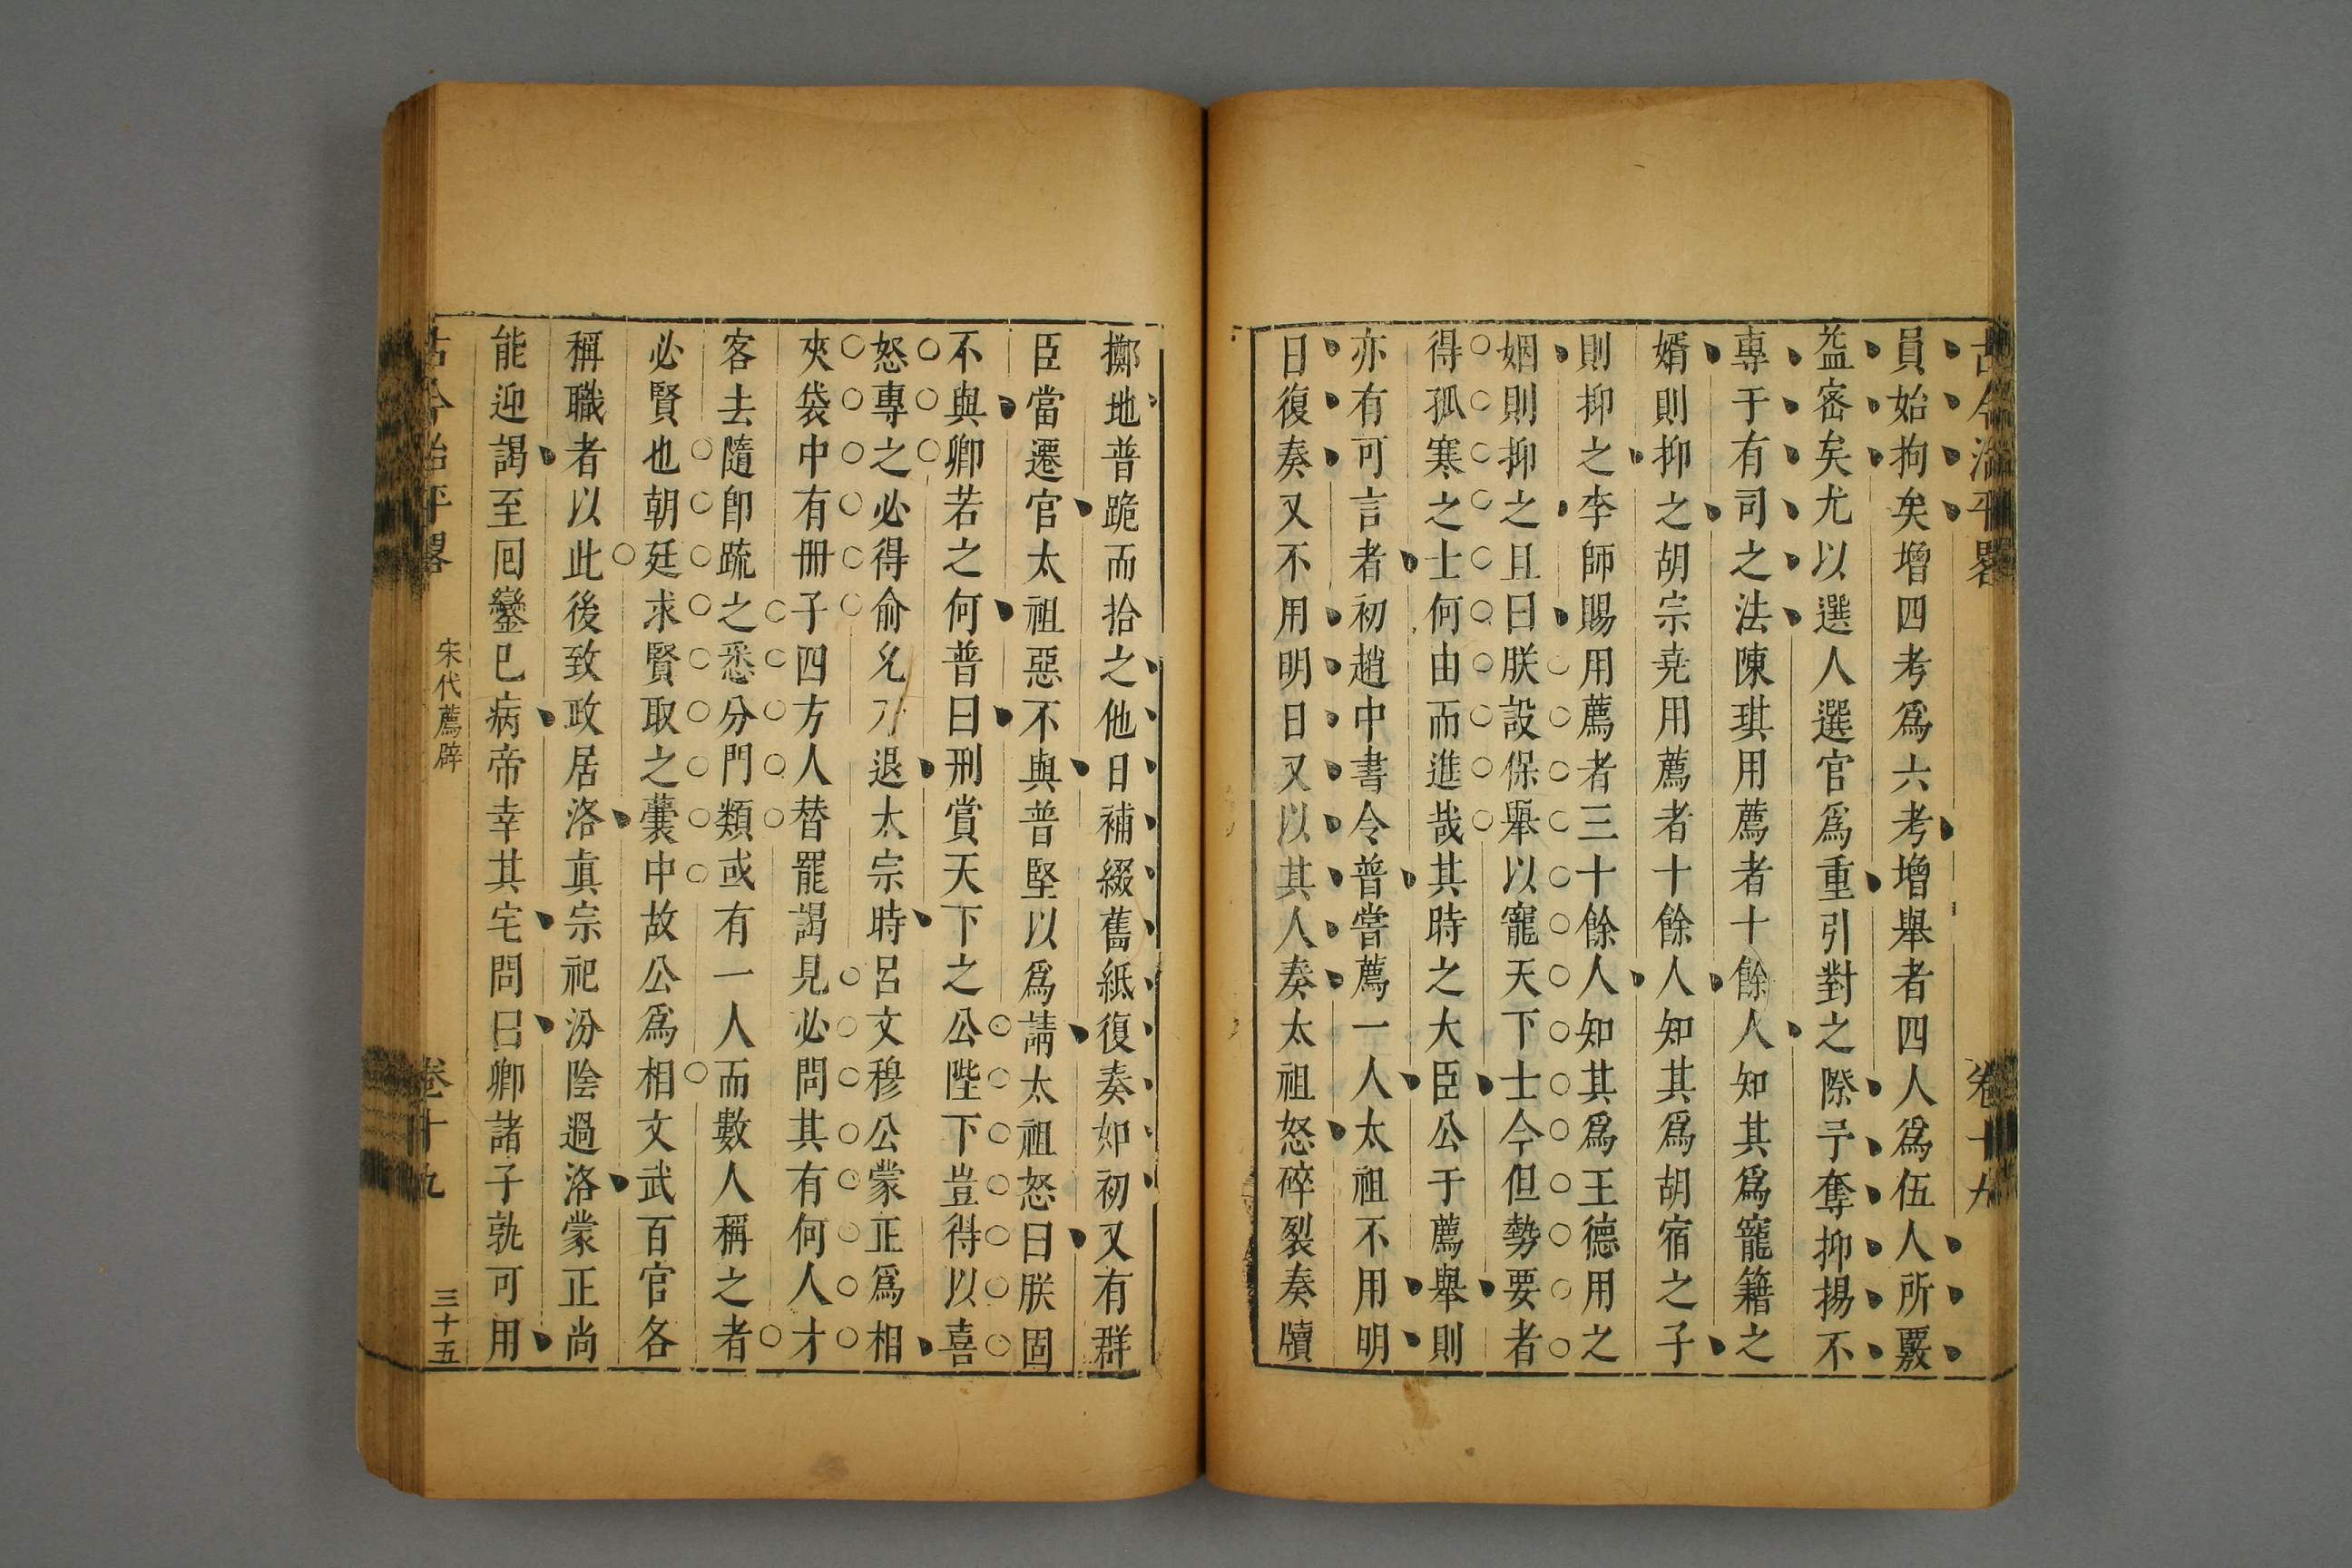 古今治平畧 卷十九
員始拘矣增四考爲六考增舉者四人爲伍人所覈
益密矣尤以選人選官爲重引對之際予奪抑揚不
專于有司之法陳琪用薦者十餘人知其爲寵籍之
婿則抑之胡宗尭用薦者十餘人知其爲胡宿之子
則抑之李師賜用薦者三十餘人知其爲王德用之
姻則抑之且曰朕設保舉以寵天下士今但勢要者
得孤寒之士何由而進哉其時之大臣公于薦舉則
亦有可言者初趙中書令普嘗薦一人太祖不用明
日復奏又不用明日又以其人奏太祖怒碎裂奏牘
擲地普跪而拾之他日補綴舊紙復奏如初又有群
臣當遷官太祖惡不與普堅以爲請太祖怒曰朕固
不與卿若之何普曰刑賞天下之公陛下豈得以喜
怒專之必得俞允乃退太宗時呂文穆公蒙正爲相
夾袋中有冊子四方人替罷謁見必問其有何人才
客去隨卽疏之悉分門類或有一人而數人稱之者
必賢也朝廷求賢取之囊中故公爲相文武百官各
稱職者以此後致政居洛眞宗祀汾陰過洛蒙正尚
能迎謁至囘鑾已病帝幸其宅問曰卿諸子孰可用
古今治平畧 宋代薦辟 卷十九 三十五